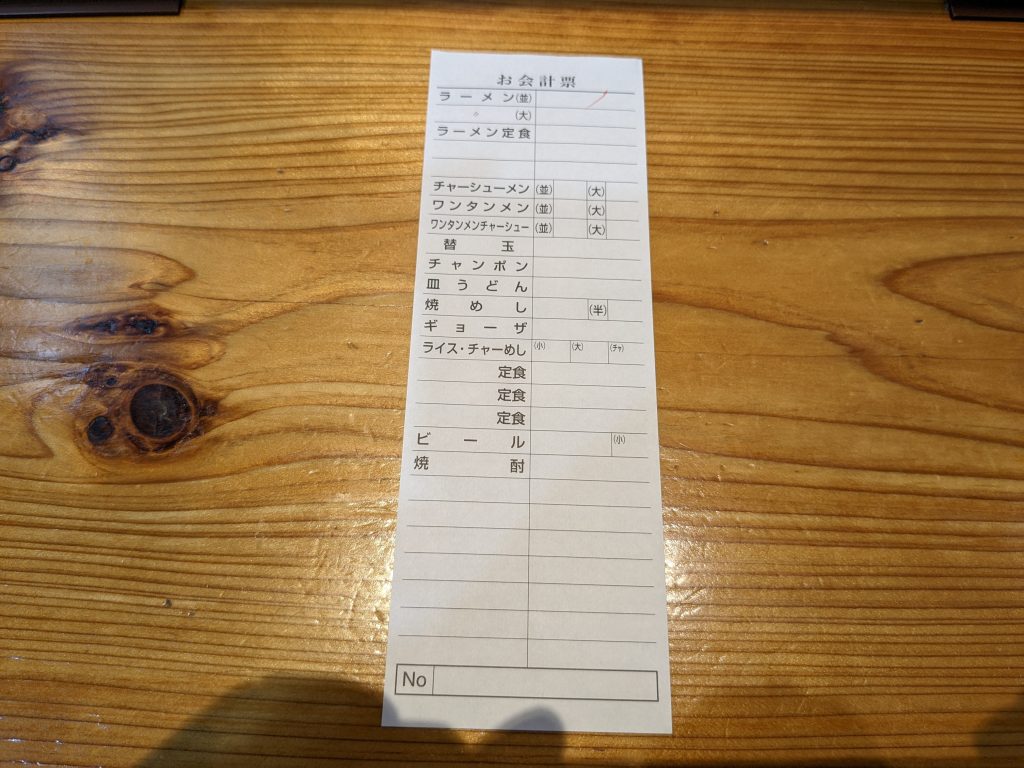 お会計票
ラーメン(並)
〃 (大)
ラーメン定食
チャーシューメン (並) (大)
ワンタンメン (並) (大)
ワンタンメンチャーシュー (並) (大)
替玉
チャンポン
皿うどん
焼めし (半)
ギョーザ
ライス・チャーめし (小) (大) (チャ)
定食
定食
定食
ビール (小)
焼酎
No